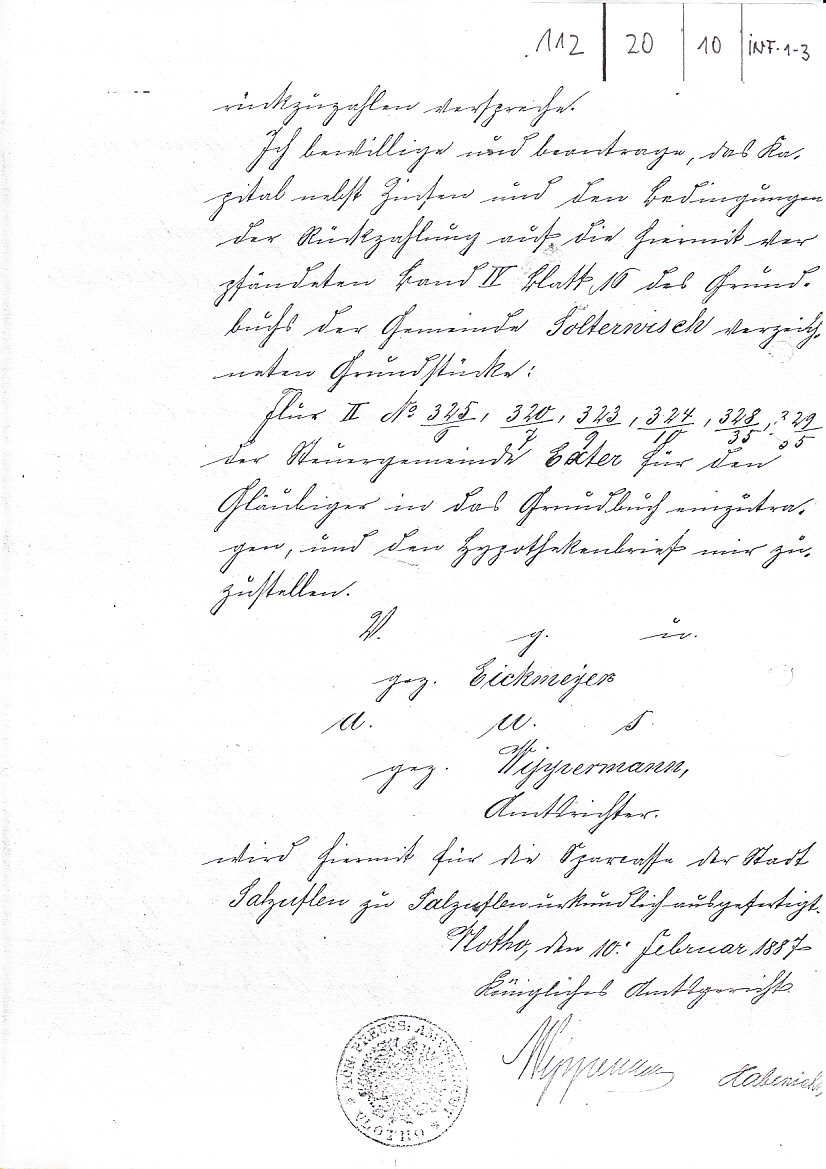 112 | 20 | 10 | INF. 1-3
rückzuzahlen verspreche.
Ich bewillige und beantrage, das Ka-
pital nebst Zinsen und den Bedingungen
der Rückzahlung auf die hiermit ver
pfändeten Band IV Blatt 16 des Grund-
buchs der Gemeinde Solterwisch verzeich-
neten Grundstücke:
Flur II No 325/6, 320/7, 323/9, 324/10, 328/35, 329/35
der Steuergemeinde Exter für den
Gläubiger in das Grundbuch einzutra-
gen, und den Hypothekenbrief mir zu-
zustellen.
V. g. u.
gez. Eickmeyer
a. u. s
gez. Wippermann,
Amtsrichter.
wird hiermit für die Sparcasse der Stadt
Salzuflen zu Salzuflen urkundlich ausgefertigt.
Vlotho, den 10. Februar 1887
Königliches Amtsgericht
Wippermann Habenicht
KÖN. PREUSS. AMTSGERICHT * VLOTHO *